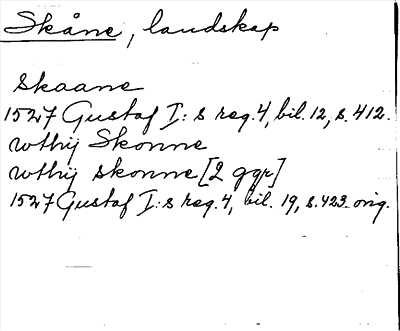 Skåne, landskap
Skaane
1527 Gustaf I:s reg. 4, bil. 12, s. 412.
wthij Skonne
wthij skonne [2 ggr]
1527 Gustaf I:s reg. 4, bil. 19, s. 423. orig.